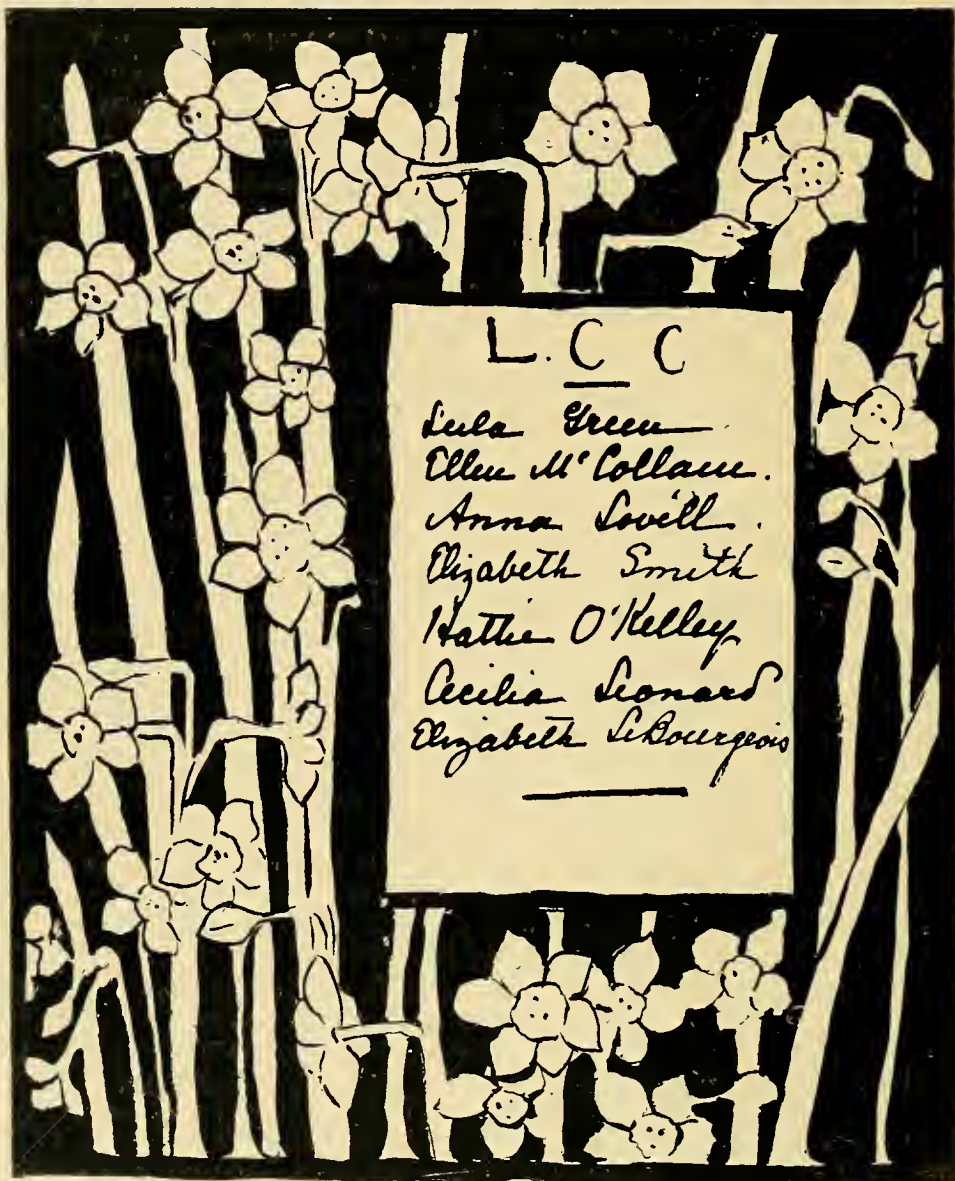 L. C C
Lula Green
Ellen McCollam.
Anna Lovell.
Elizabeth Smith
Hattie O'Kelley
Cecilia Leonard
Elizabeth LeBourgeois